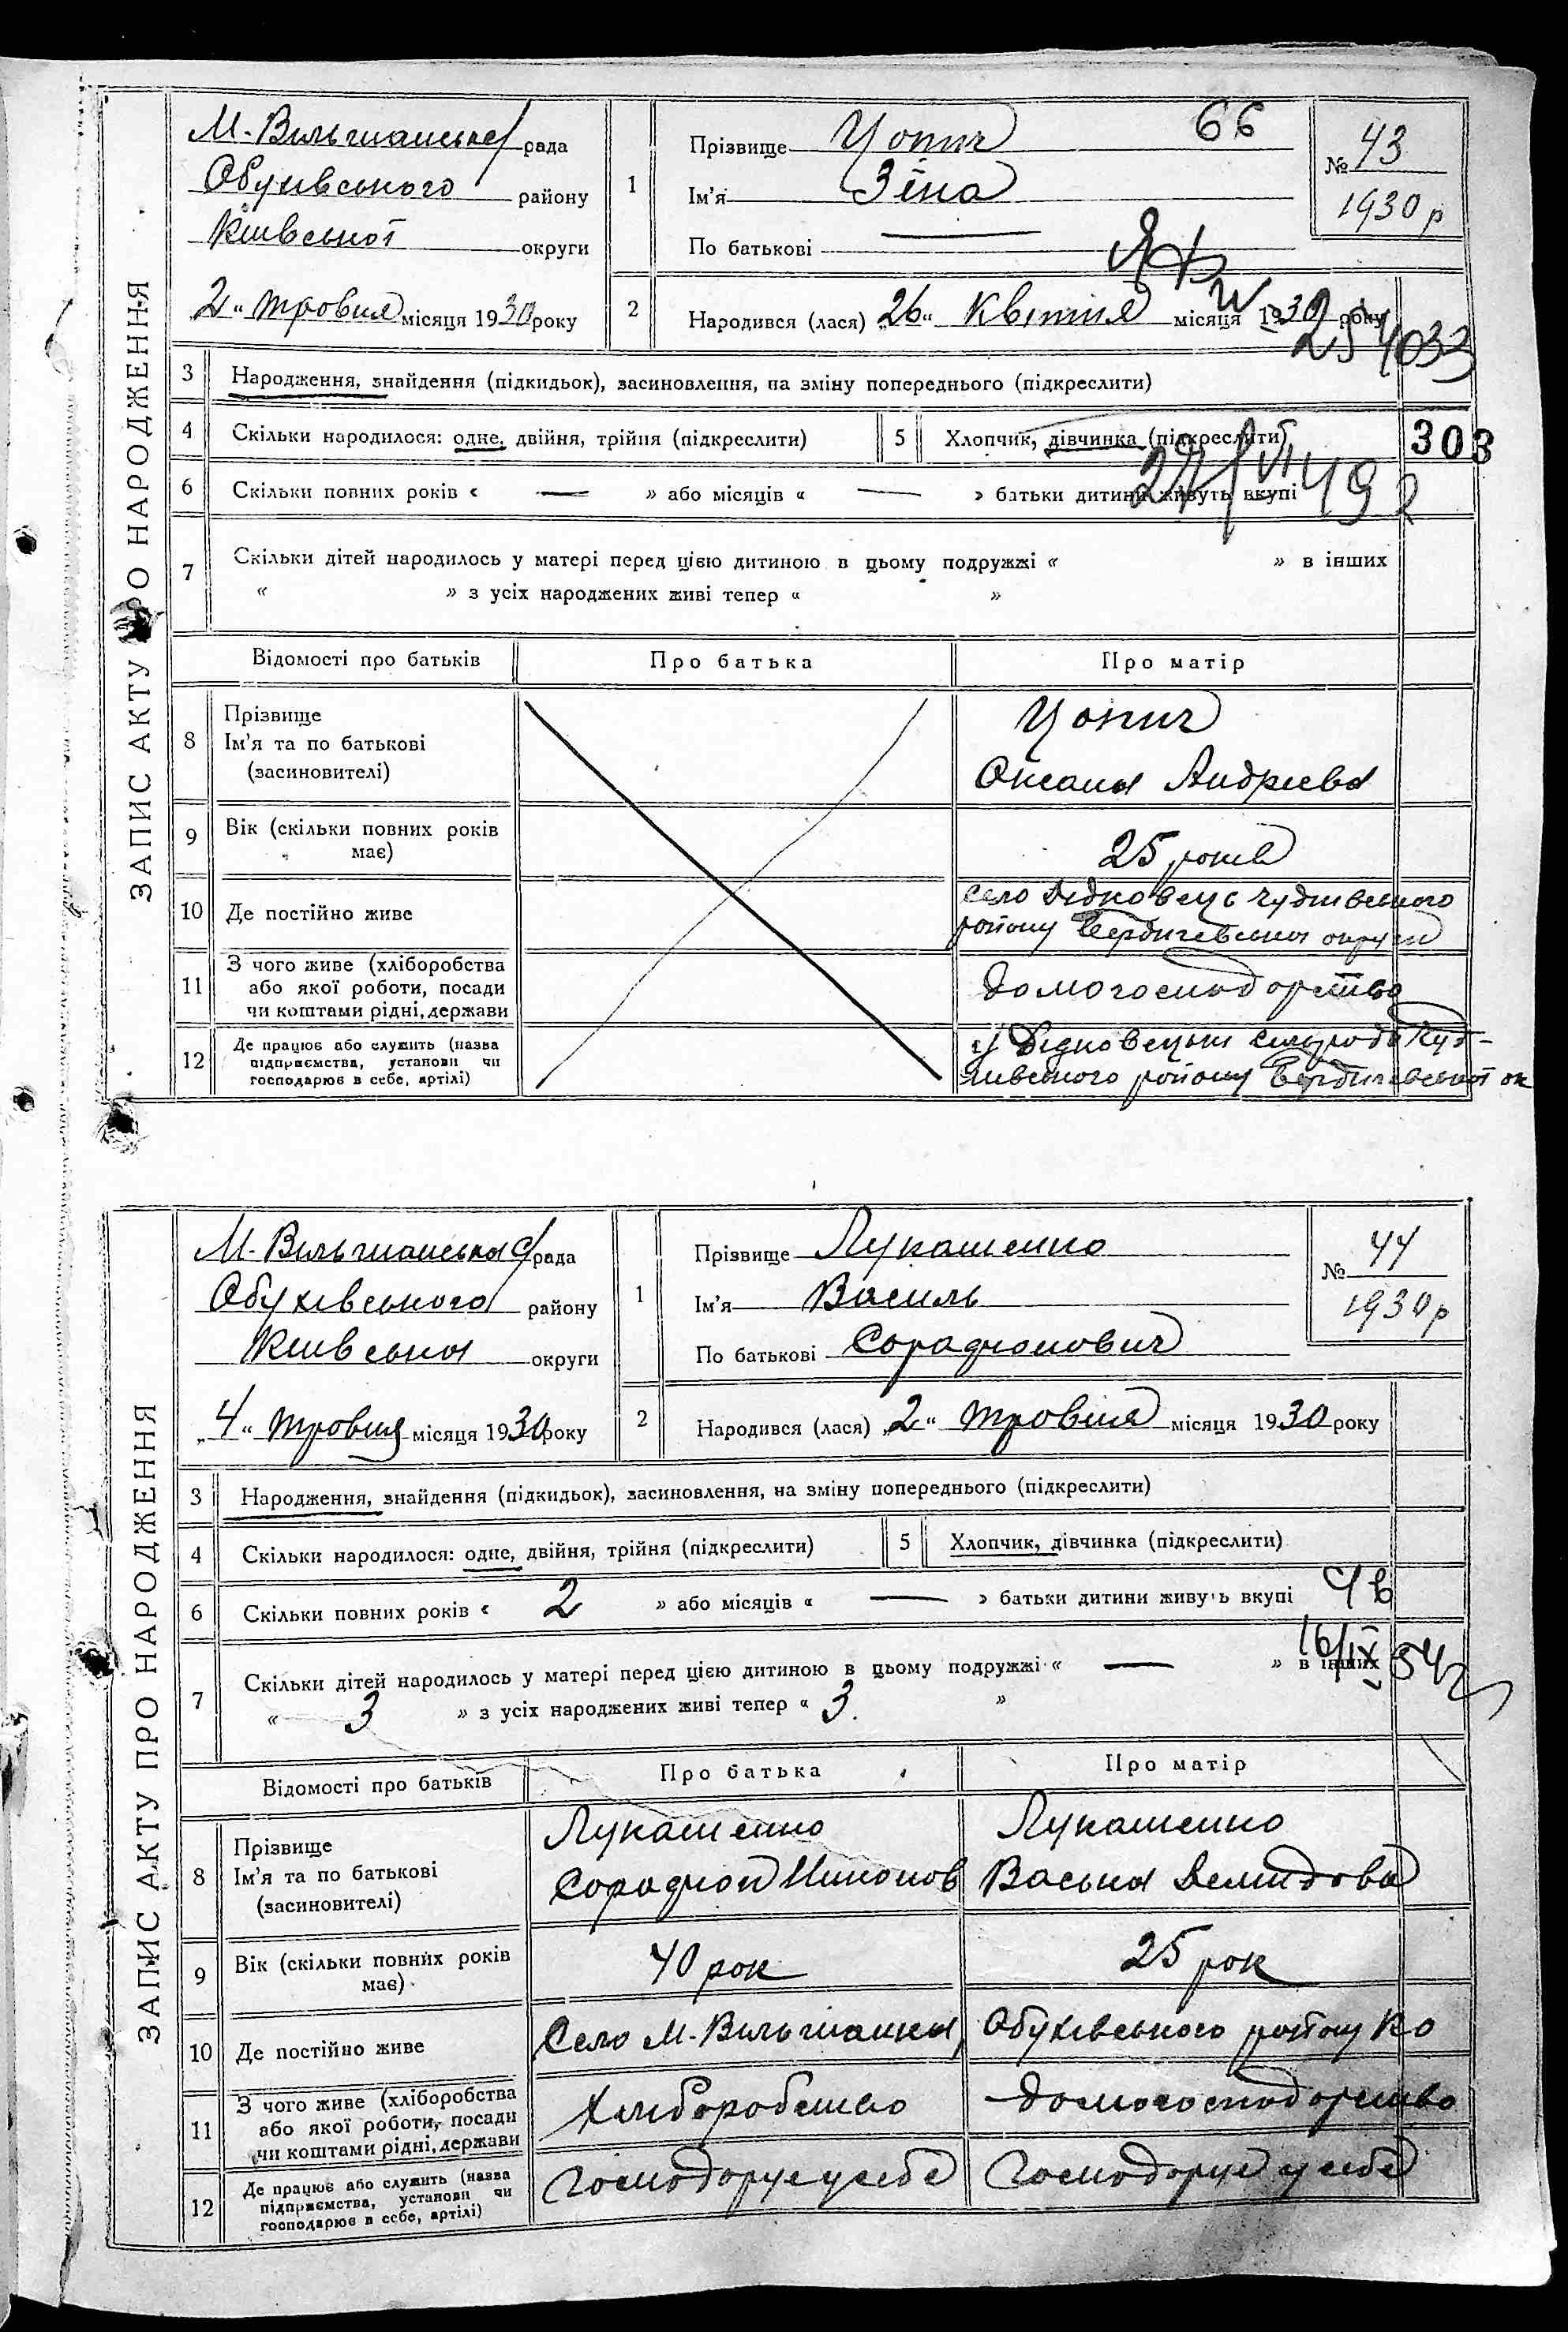 ЗАПИС АКТУ ПРО НАРОДЖЕННЯ
М-Вільшанська с/рада
Обухівського району
Київської округи
2 " травня місяця 1930 року
1
Прізвище Цопич
Ім'я Зіна
По батькові —
66
№ 43
1930 р
2
Народився (лася) „26" Квітня місяця 1930 року
3
Народження, знайдення (підкидьок), засиновлення, на зміну попереднього (підкреслити)
4
Скільки народилося: одне, двійня, трійня (підкреслити)
5
Хлопчик, дівчинка (підкреслити)
303
6
Скільки повних років « — » або місяців « — » батьки дитини живуть вкупі
7
Скільки дітей народилось у матері перед цією дитиною в цьому подружжі « » в інших
« » з усіх народжених живі тепер « »
Відомості про батьків
Про батька
Про матір
8
Прізвище
Ім'я та по батькові
(засиновителі)
Цопич
Оксана Андреева
9
Вік (скільки повних років
має)
25 років
10
Де постійно живе
село Дідковець Чуднівського
району Бердичевської округи
11
З чого живе (хліборобства
або якої роботи, посади
чи коштами рідні, держави
домогосподарство
12
Де працює або служить (назва
підприємства, установи чи
господарює в себе, артілі)
у Дідковецькі сельрада Чуд-
нивського району Бердичевської ок
ЗАПИС АКТУ ПРО НАРОДЖЕННЯ
М-Вільшанська с/рада
Обухівського району
Київська округи
„4" травня місяця 1930 року
1
Прізвище Лукашенко
Ім'я Василь
По батькові Сорафионович
№ 44
1930 р
2
Народився (лася) „2" травня місяця 1930 року
3
Народження, знайдення (підкидьок), засиновлення, на зміну попереднього (підкреслити)
4
Скільки народилося: одне, двійня, трійня (підкреслити)
5
Хлопчик, дівчинка (підкреслити)
6
Скільки повних років « 2 » або місяців « — » батьки дитини живуть вкупі
16/IX 54
7
Скільки дітей народилось у матері перед цією дитиною в цьому подружжі « — » в інших
« 3 » з усіх народжених живі тепер « 3. »
Відомості про батьків
Про батька
Про матір
8
Прізвище
Ім'я та по батькові
(засиновителі)
Лукашенко
Сорафион Никонов
Лукашенко
Васька Демидова
9
Вік (скільки повних років
має)
40 рок
25 рок
10
Де постійно живе
Село М-Вільшанка,
Обухівського району Ко
11
З чого живе (хліборобства
або якої роботи, посади
чи коштами рідні, держави
Хліборобство
домогосподарство
12
Де працює або служить (назва
підприємства, установи чи
господарює в себе, артілі)
Господарує у себе
Господарує у себе